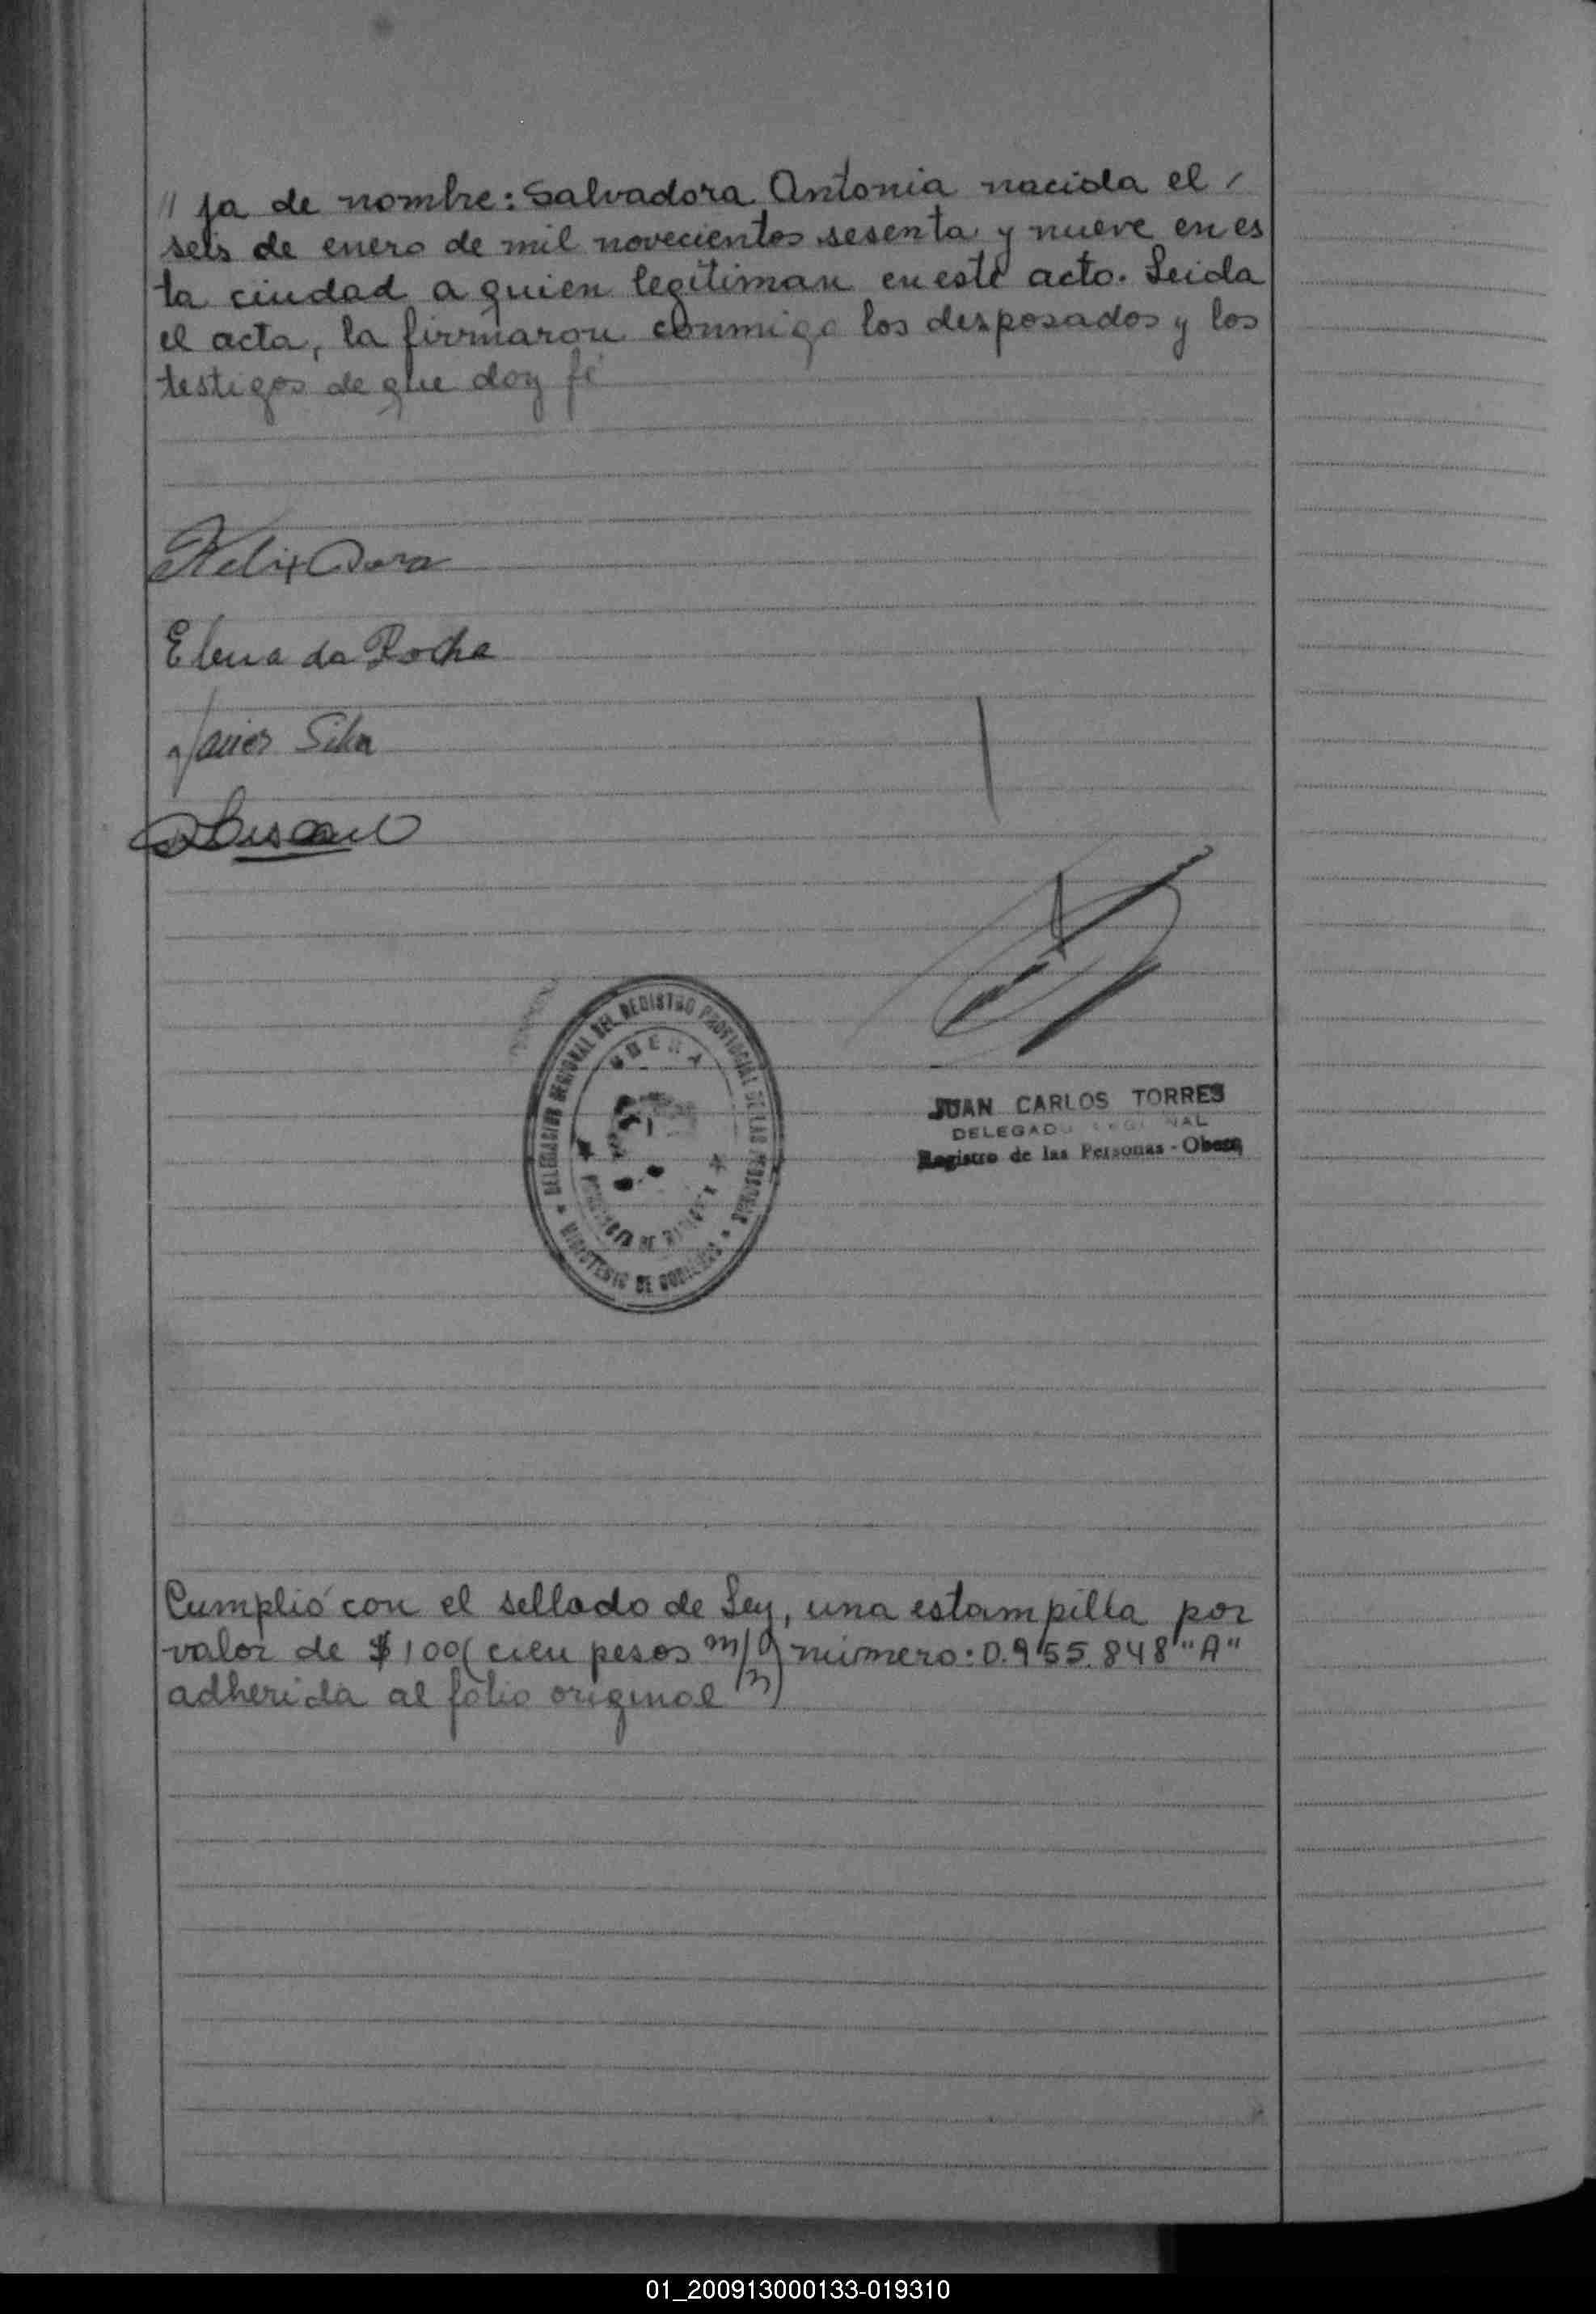 // ja de nombre: Salvadora Antonia nacida el /
seis de enero de mil novecientos sesenta y nueve en es
ta ciudad a quien legitiman en este acto. Leida
el acta, la firmaron conmigo los desposados y los
testigos de que doy fé
Elena da Rocha
Javier Silva
DELEGACION REGIONAL DEL REGISTRO PROVINCIAL DE LAS PERSONAS
OBERA
MINISTERIO DE GOBIERNO
JUAN CARLOS TORRES
DELEGADO REGIONAL
Registro de las Personas - Obera
Cumplió con el sellado de Ley, una estampilla por
valor de $ 100 (cien pesos m/n) número: 0.955.848 "A"
adherida al folio original
01_200913000133-019310